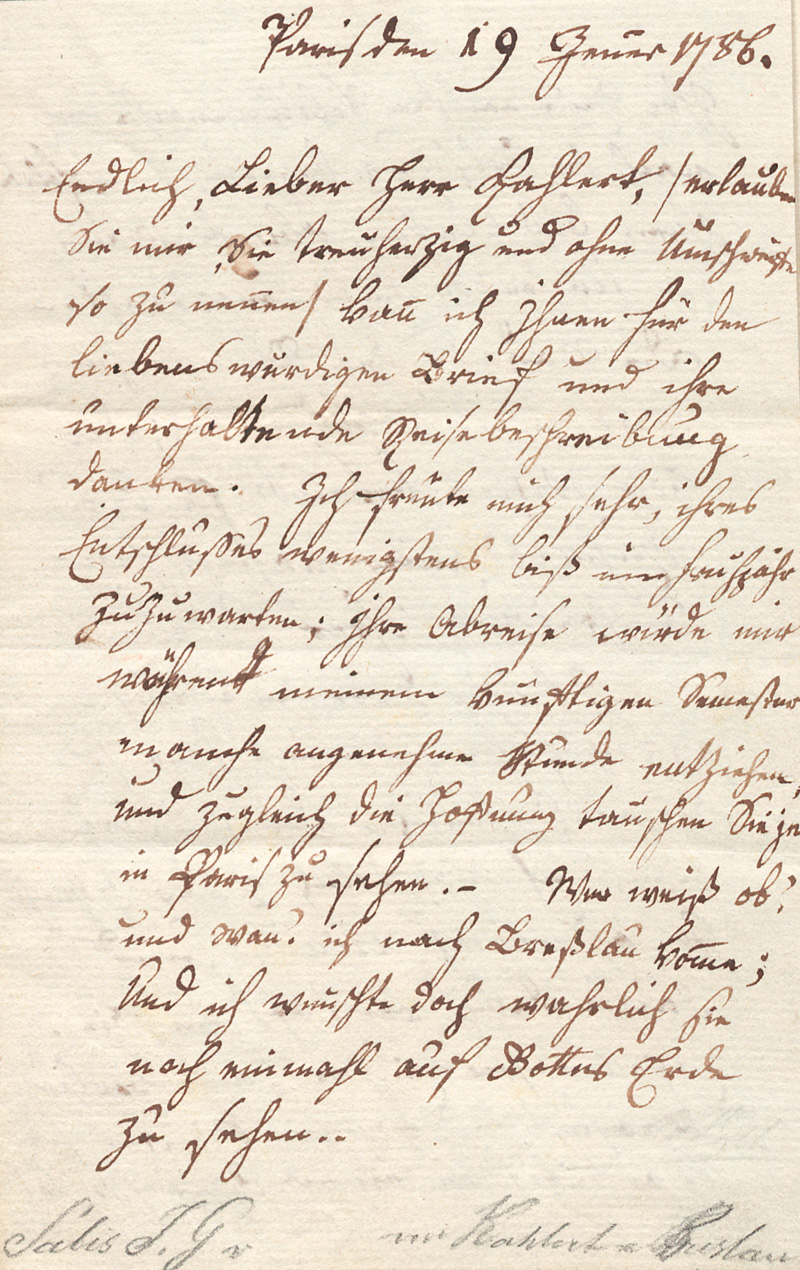 Paris den 19 Jenner 1786.
Endlich, Lieber Herr Kahlert, /erlauben
Sie mir, Sie treuherzig und ohne Umschweife
so zu nennen/ kan̄ ich Ihnen für den
liebenswurdigen Brief und ihre
unterhaltende Reisebeschreibung
danken. Ich freute mich sehr, ihres
Entschlusses wenigstens biß im fruhjahr
zuzuwarten; Ihre Abreise würde mir
während meinem kunftigen Semester
manche angenehme Stunde entziehen,
und zugleich die Hoffnung tauschen Sie je
in Paris zu sehen. – Wer weiß ob?
und wan? ich nach Breßlau kom̄e;
Und ich wunschte doch wahrlich sie
noch einmahl auf Gottes Erde
zu sehen..
Salis J. G v an Kahlert in Breslau